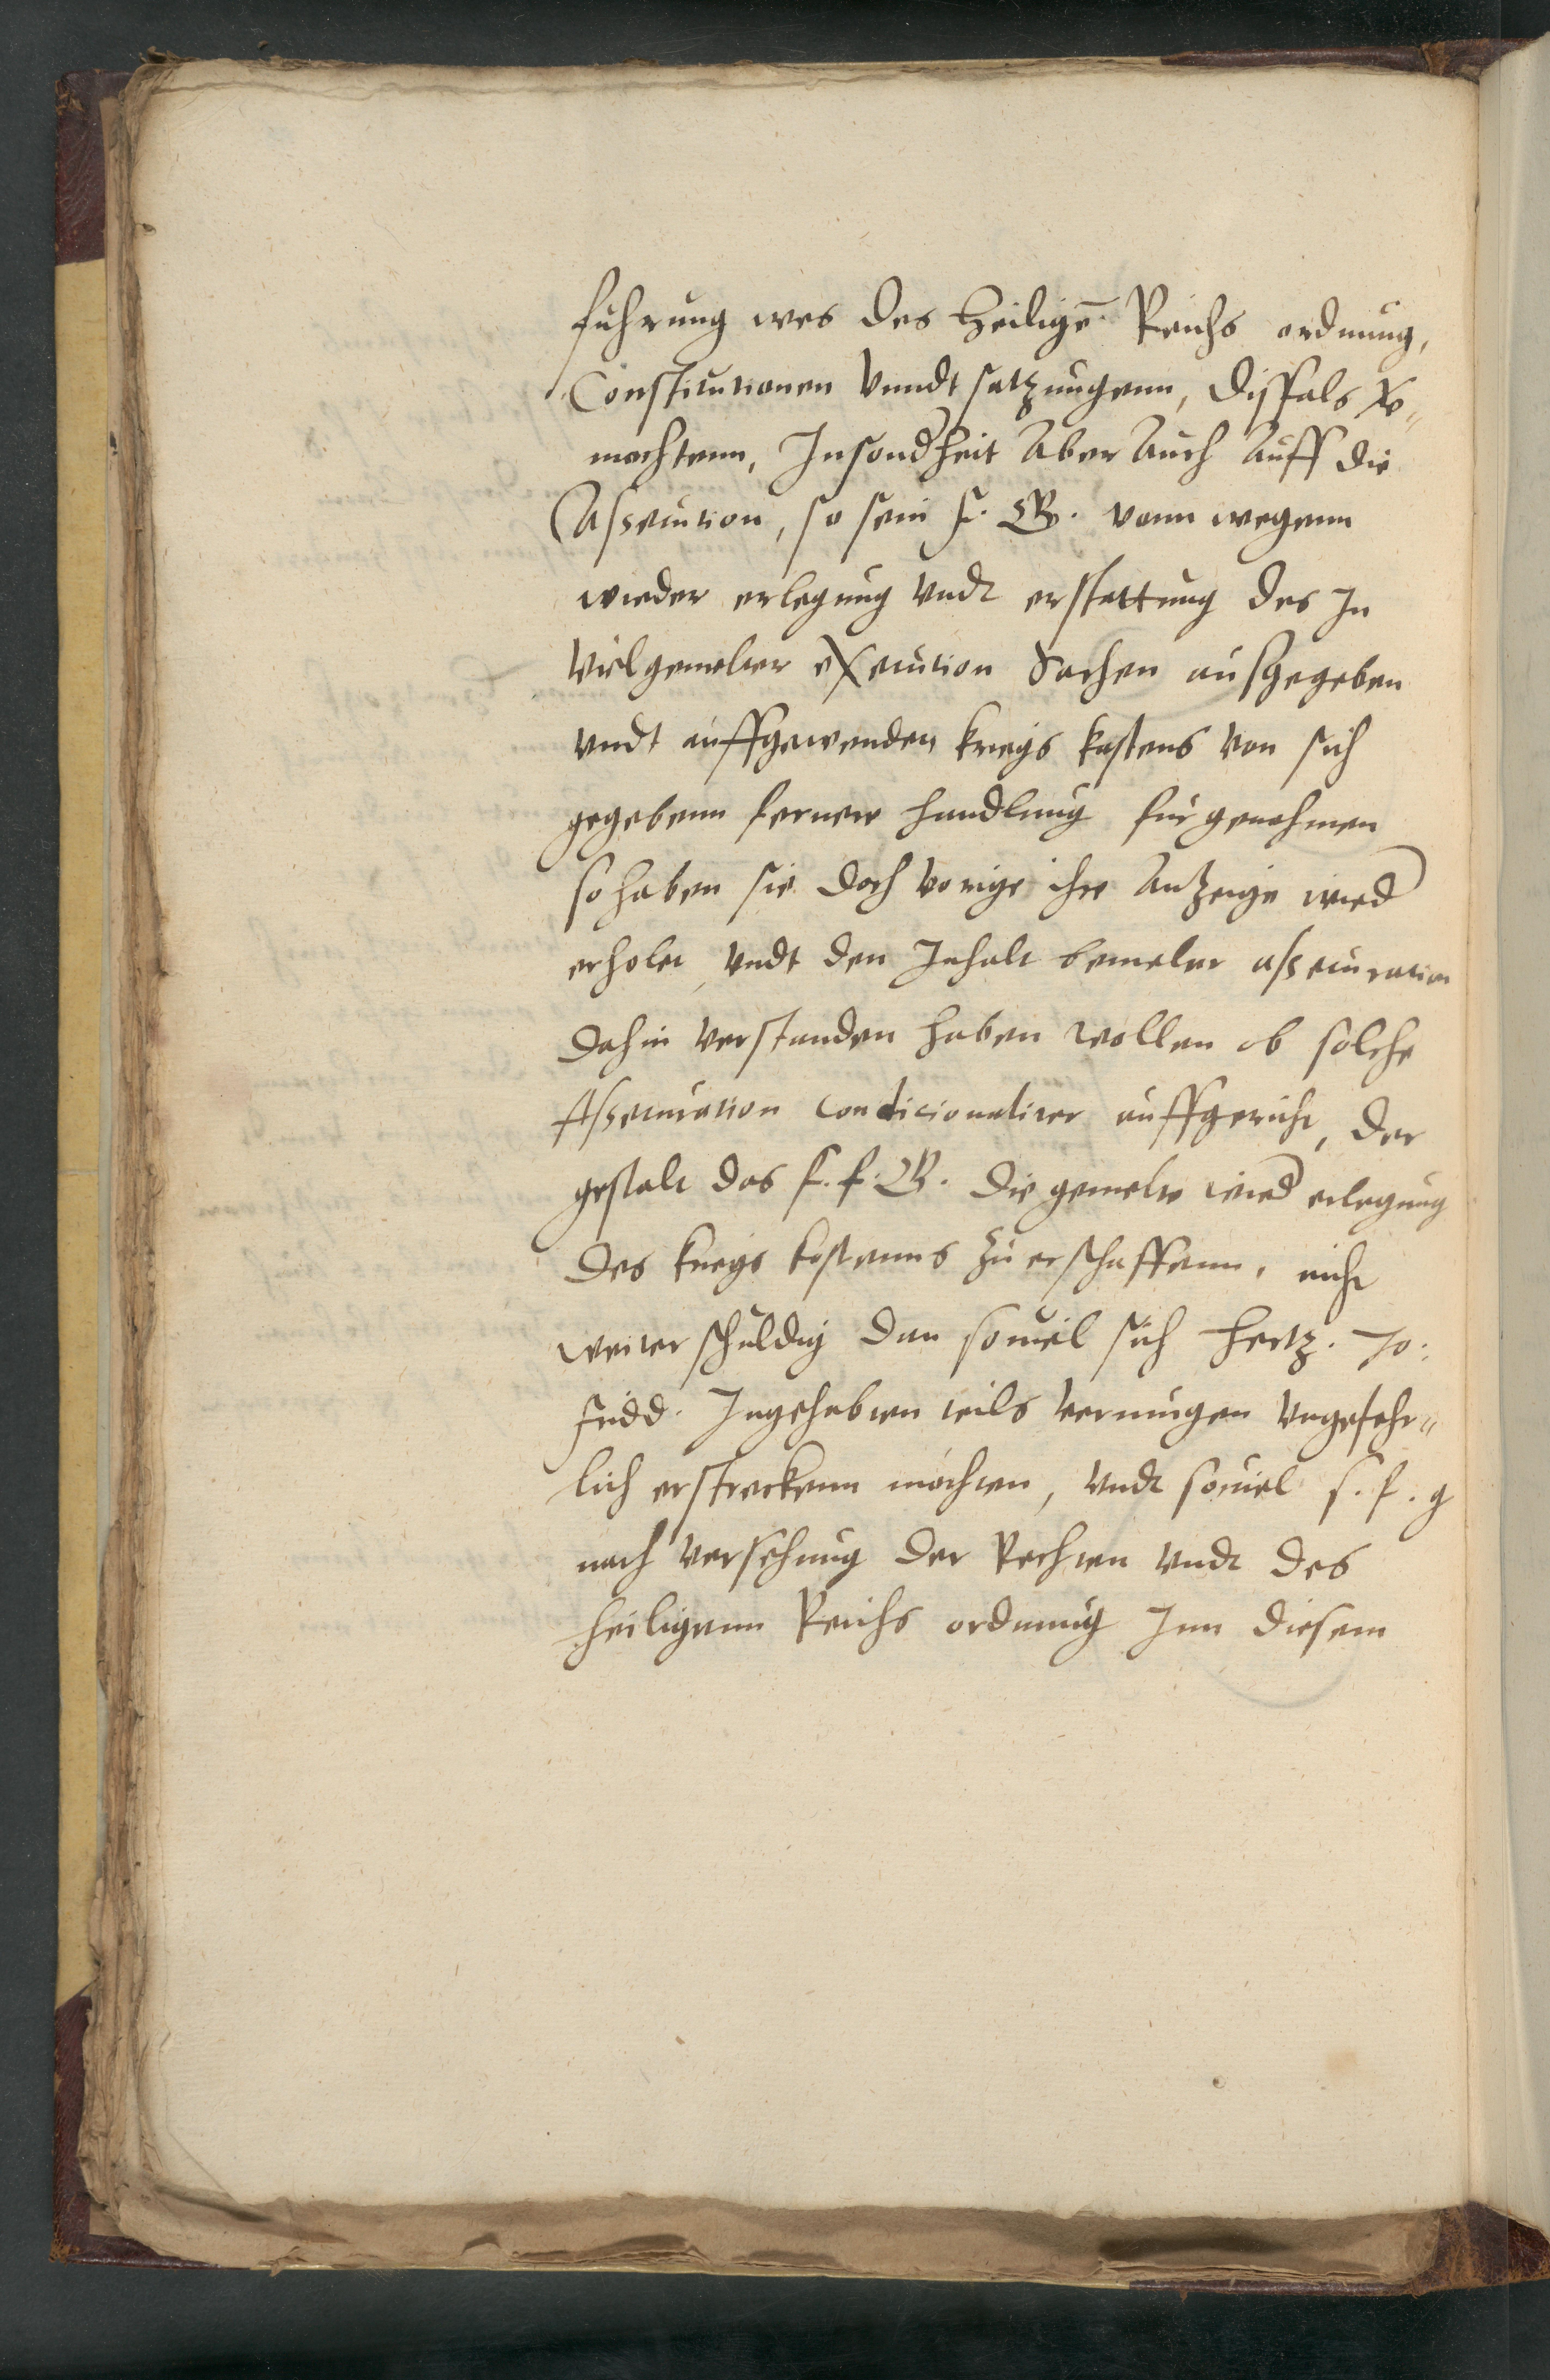 fuhrung wes des heiligē Reichs ordnung,
Constitutionen vnndt satzungenn, disfals v̄er¬
mochtenn, Insond'heit aber auch auff die
Assecution, so sein f. G. vonn wegenn
wieder erlegung vndt erstattung des In
vielgemelter execution Sachen ausgegeben
vndt auffgewenden kriegs kostens von sich
gegebenn ferner handlung furgenohmen
so haben sie doch vorige ihre antzeige wied'
erholet, vndt den Inhalt bemelter assecuration
dahin verstanden haben wollen ob solche
Assecuration conditionaliter auffgericht, der
gestalt das s. f. G. die gemelte wied' erlegung
des kriegs kostenns zu erschaffenn, nicht
weiter schuldig dan souiel sich Hertz. Jo:
fridd. Ingehabten teils vermugen vngefehr¬
lich ersteckenn mochten, vndt souiel s. f. g
nach versehung der Rechten vndt des
heiligenn Reichs ordnung Inn diesem